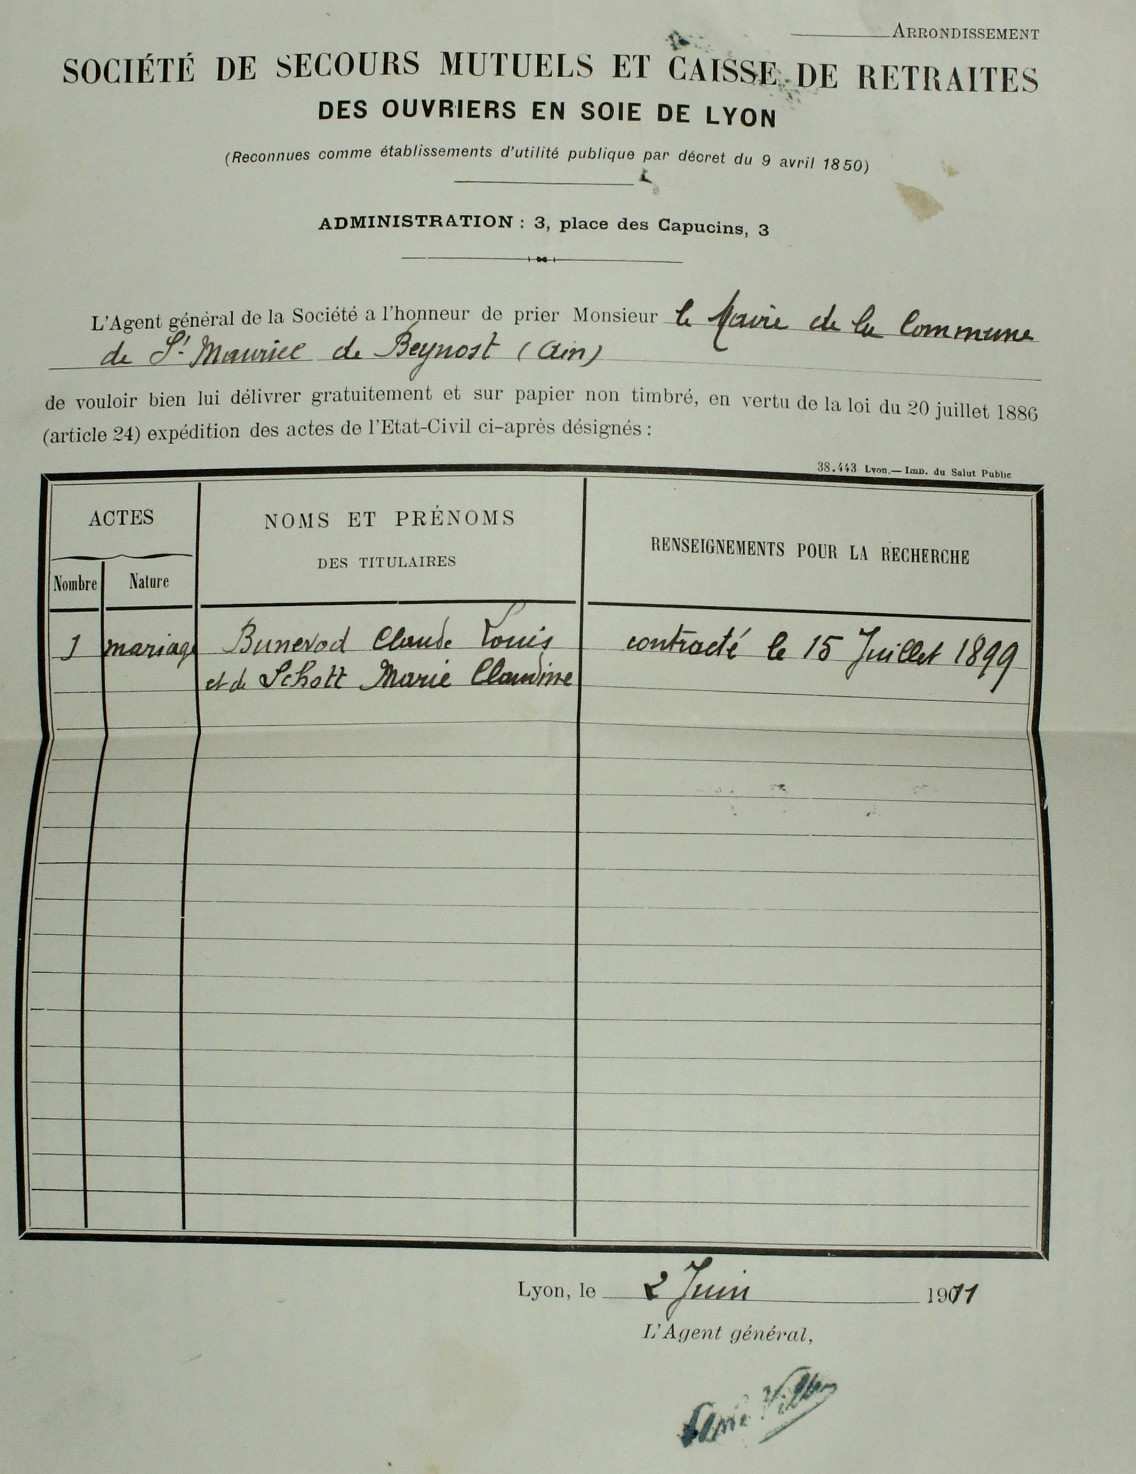 ARRONDISSEMENT
SOCIÉTÉ DE SECOURS MUTUELS ET CAISSE DE RETRAITES
DES OUVRIERS EN SOIE DE LYON
(Reconnues comme établissements d'utilité publique par décret du 9 avril 1850)
ADMINISTRATION : 3, place des Capucins, 3
L'Agent général de la Société a l'honneur de prier Monsieur le Maire de la Commune
de St. Maurice de Beynost (Ain)
de vouloir bien lui délivrer gratuitement et sur papier non timbré, en vertu de la loi du 20 juillet 1886
(article 24) expédition des actes de l'Etat-Civil ci-après désignés :
38.443 Lyon.— Imp. du Salut Public
ACTES
Nombre Nature
NOMS ET PRÉNOMS
DES TITULAIRES
RENSEIGNEMENTS POUR LA RECHERCHE
1 mariage Bunerod Claude Louis contracté le 15 Juillet 1899
et de Schott Marie Claudine
Lyon, le 2 Juin 1911
L'Agent général,